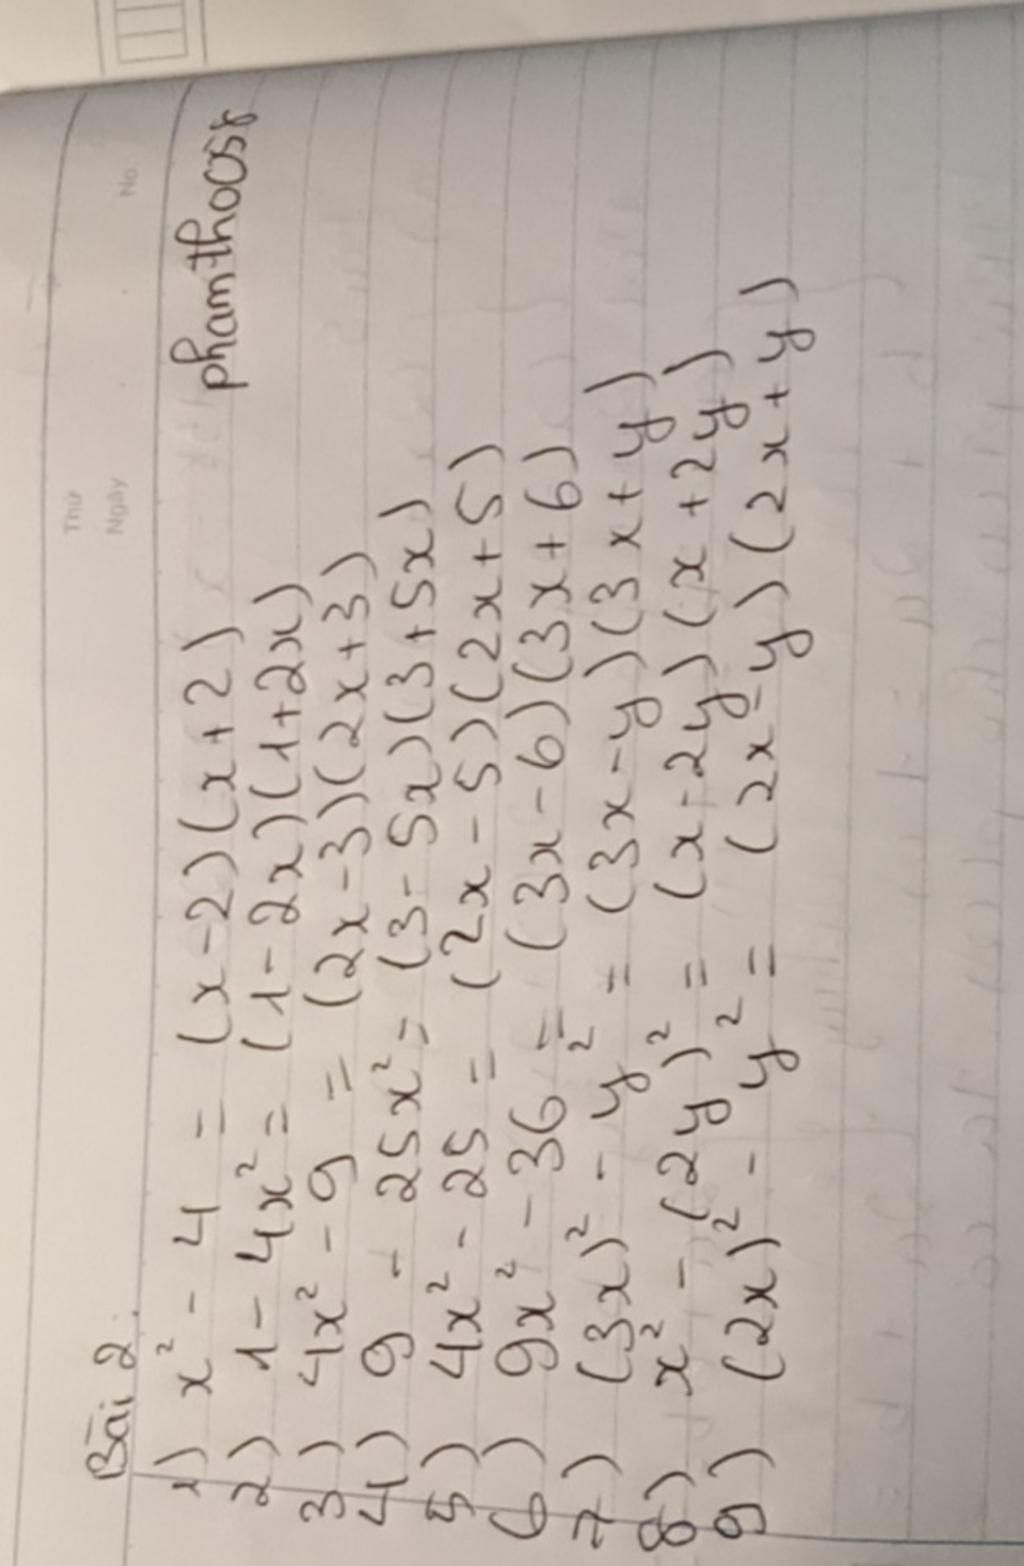 Thứ
Ngày
No.
Bài 2.
phamthocos8
1) x² - 4 = (x-2)(x+2)
2) 1 - 4x² = (1-2x)(1+2x)
3) 4x² - 9 = (2x-3)(2x+3)
4) 9 - 25x² = (3-5x)(3+5x)
5) 4x² - 25 = (2x-5)(2x+5)
6) 9x² - 36 = (3x-6)(3x+6)
7) (3x)² - y² = (3x-y)(3x+y)
8) x² - (2y)² = (x-2y)(x+2y)
9) (2x)² - y² = (2x-y)(2x+y)